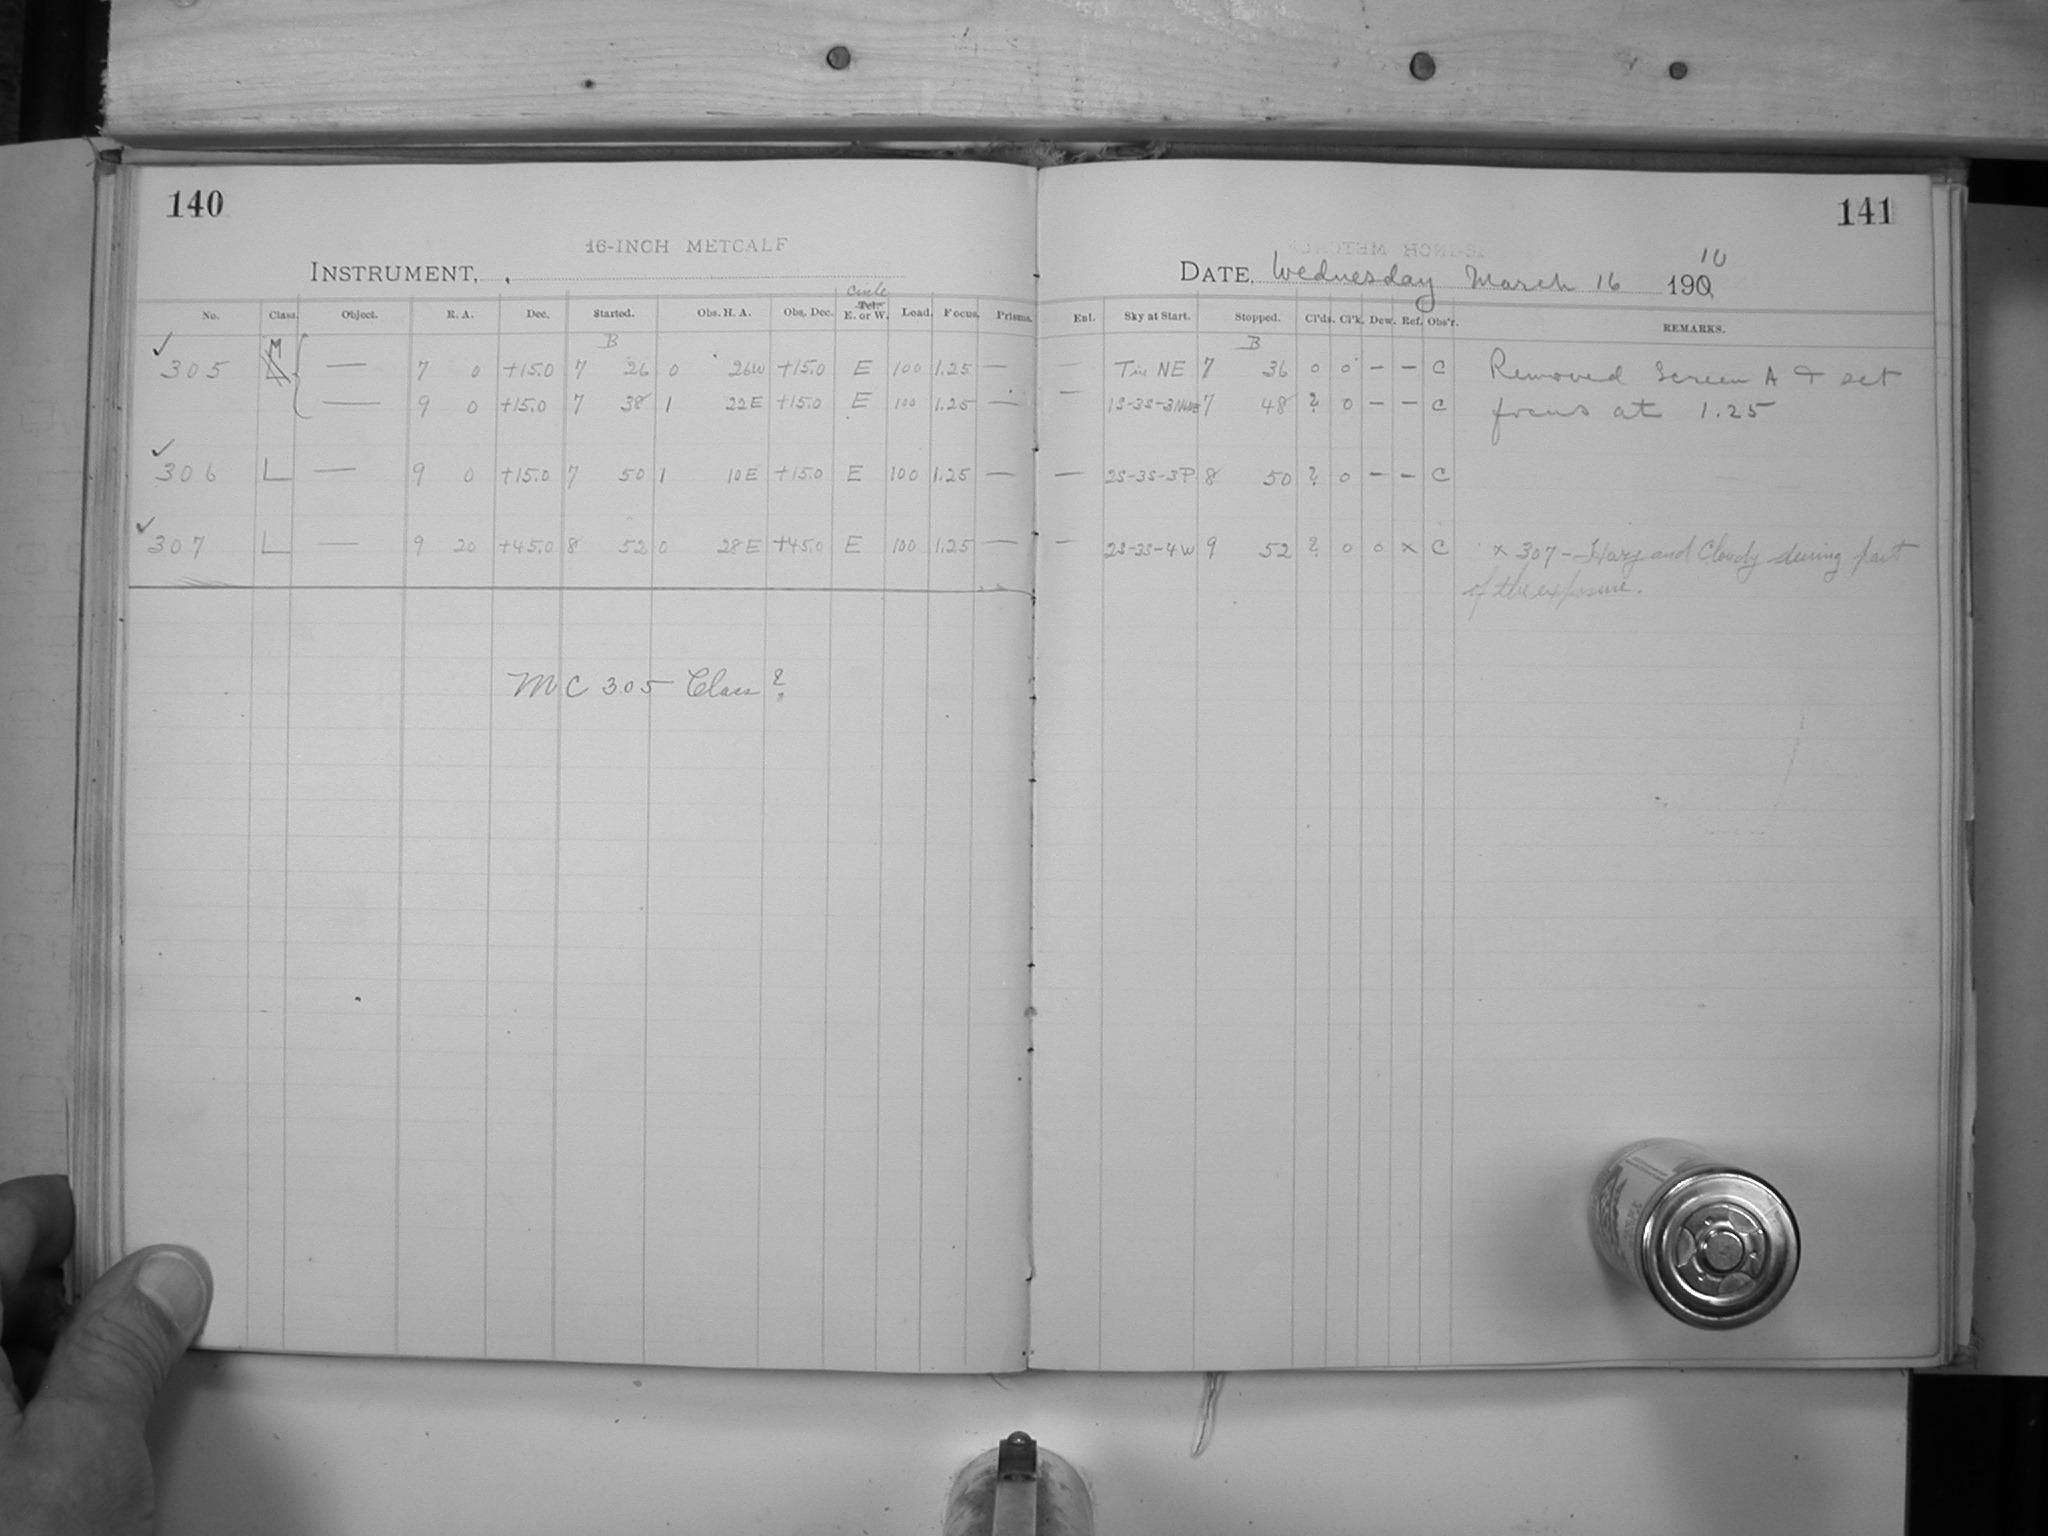 140
16-INCH METCALF
INSTRUMENT,
No. Class. Object. R. A. Dec. Started. Obs. H. A. Obs. Dec. Circle Tel. E. or W. Load. Focus. Prisms.
B
305 M L — 7 0 +15.0 7 26 0 26W +15.0 E 100 1.25 —
— 9 0 +15.0 7 38 1 22E +15.0 E 100 1.25 —
306 L — 9 0 +15.0 7 50 1 10E +15.0 E 100 1.25 —
307 L — 9 20 +45.0 8 52 0 28E +45.0 E 100 1.25 —
MC 305 Class?
141
DATE, Wednesday March 16 1910
Enl. Sky at Start. Stopped. Cl'ds. Cl'k. Dew. Ref. Obs'r. REMARKS.
B
— NE 7 36 0 0 – – C Removed Screen A & set
— 1S-3S- 7 48 ? 0 – – C focus at 1.25
— 2S-3S-3P 8 50 ? 0 – – C
— 2S-3S-4W 9 52 ? 0 0 x C x 307 – Hazy and Cloudy during part
of the exposure.